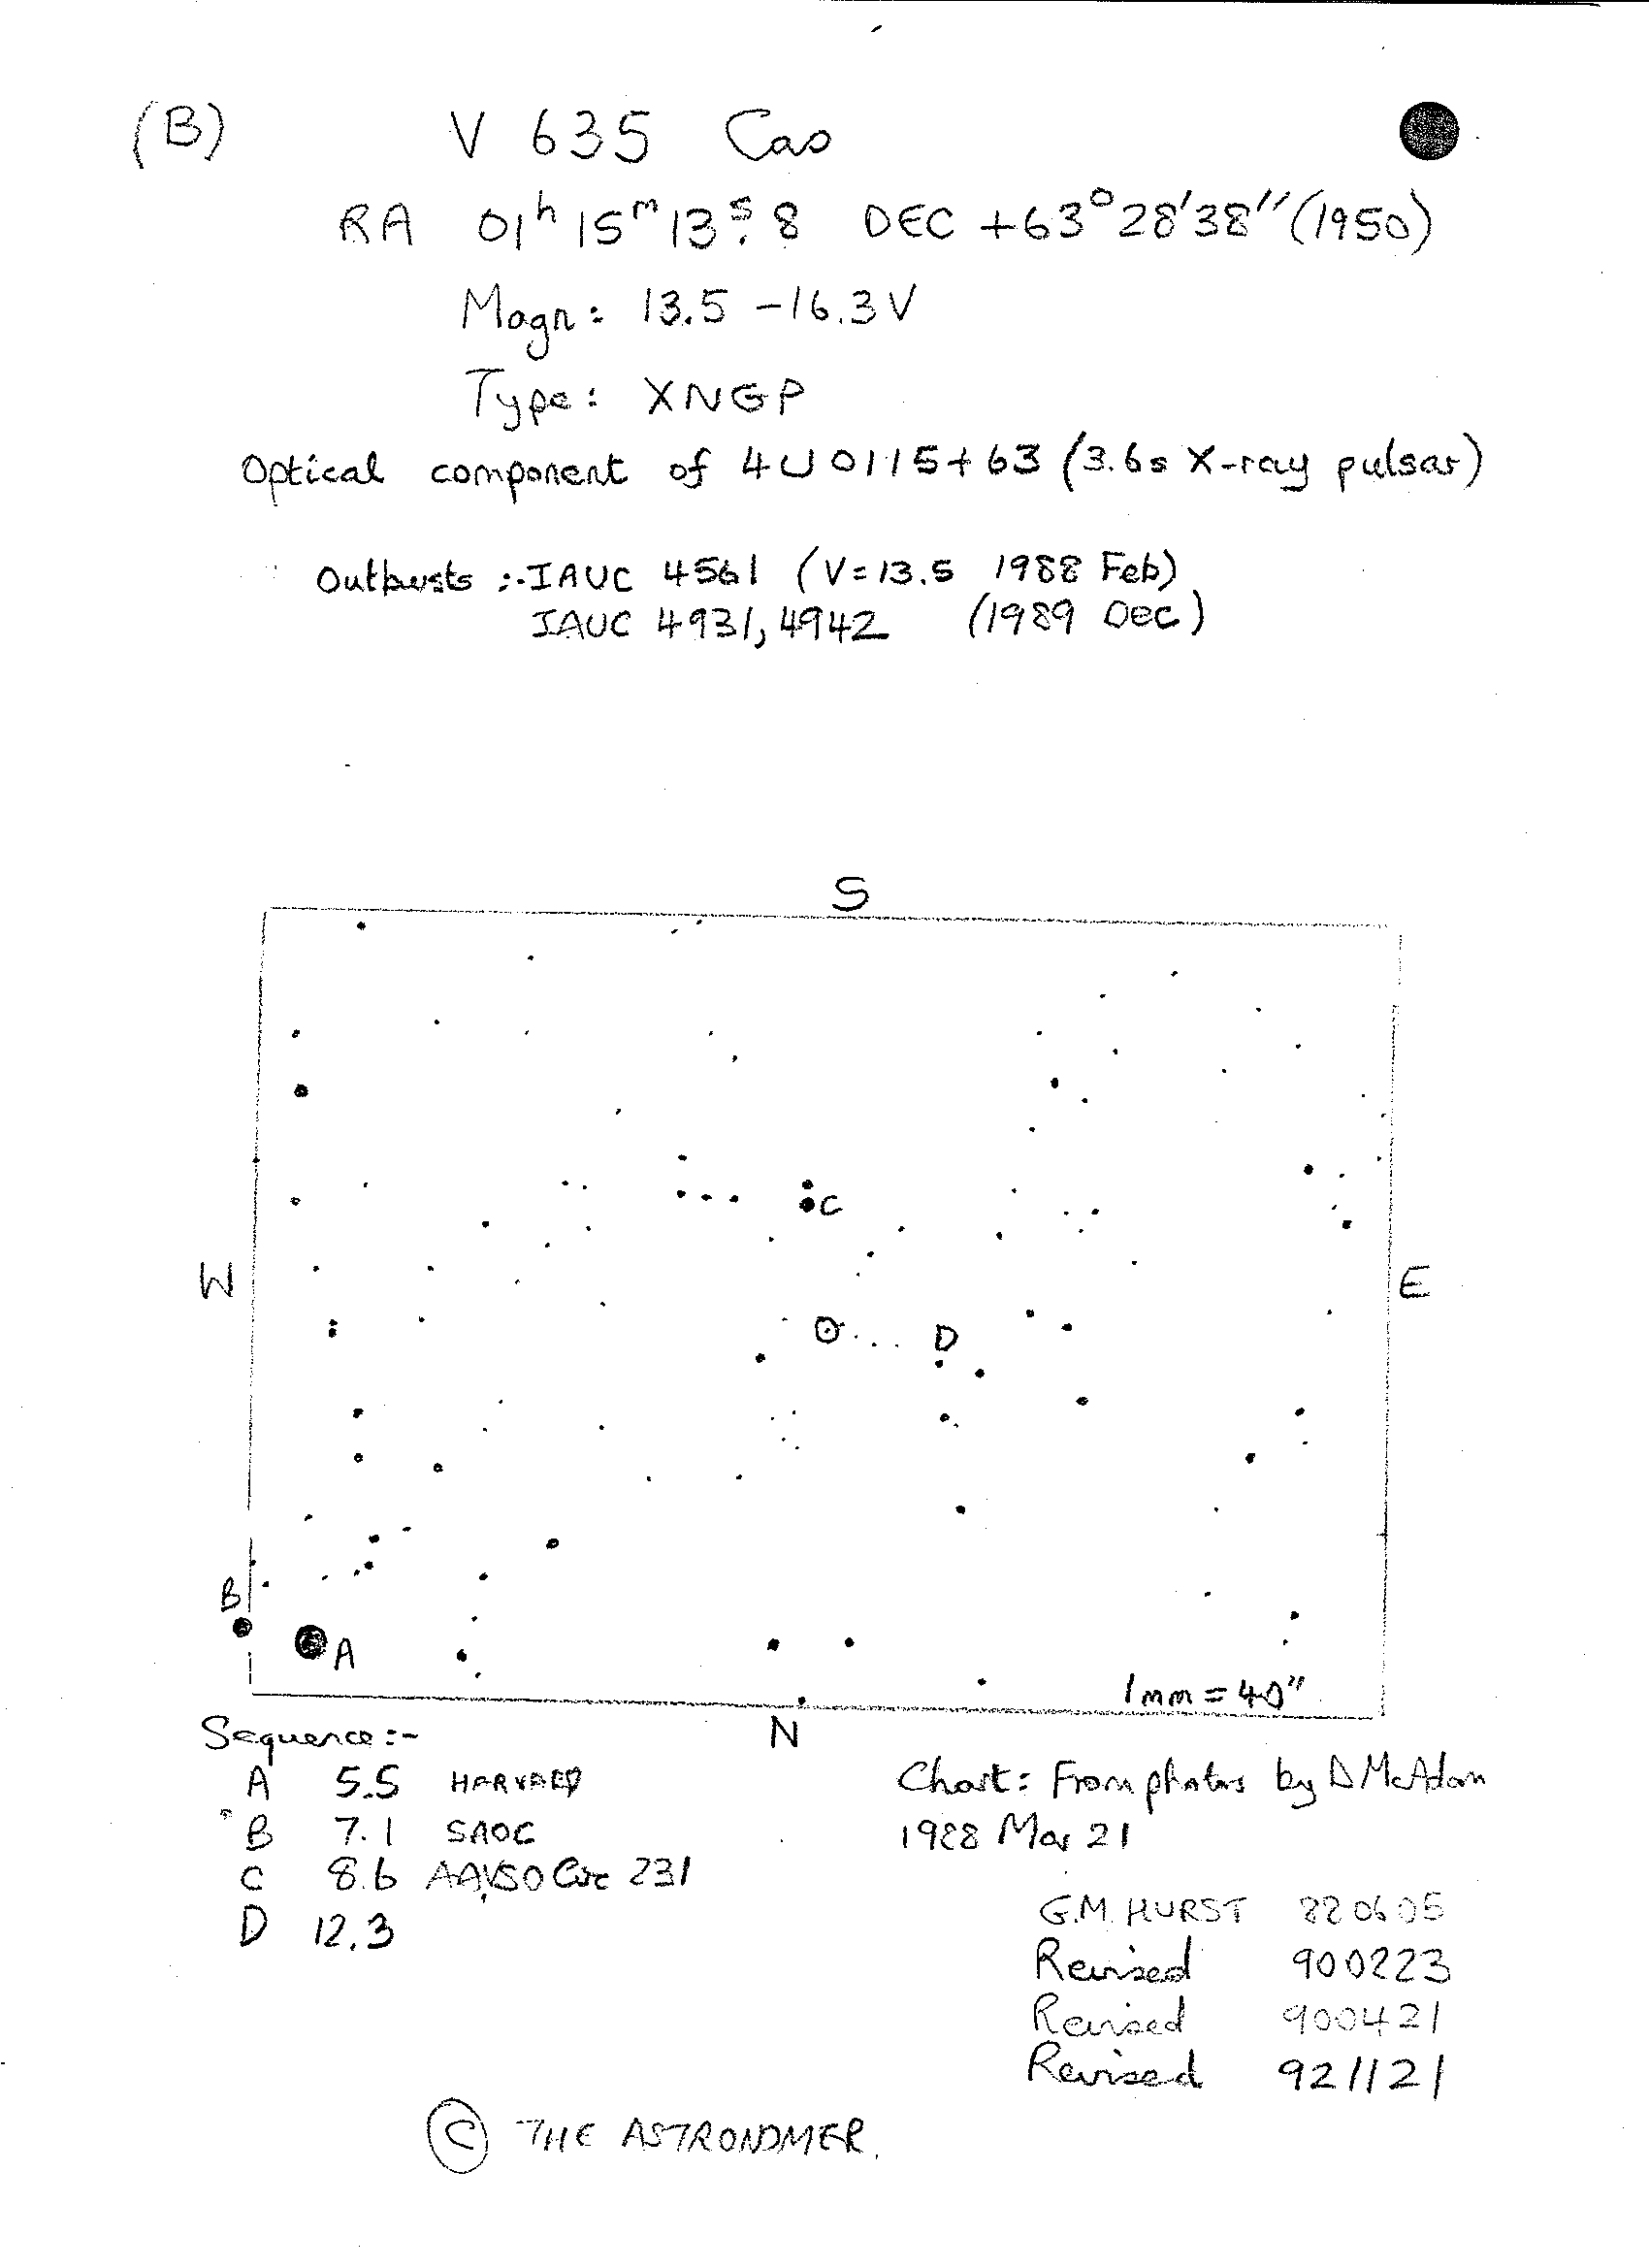 (B) V 635 Cas
RA 01h 15m 13s.8 DEC +63° 28' 38" (1950)
Magn: 13.5 - 16.3 V
Type: XNGP
Optical component of 4U 0115+63 (3.6s X-ray pulsar)
Outbursts :- IAUC 4561 (V=13.5 1988 Feb)
IAUC 4931, 4942 (1989 Dec)
S
C
W
E
D
B
A
1mm = 40"
N
Sequence :-
A 5.5 HARVARD
B 7.1 SAOC
C 8.6 AAVSO Circ 231
D 12.3
Chart: From photos by D McAdam
1988 Mar 21
G.M. HURST 880605
Revised 900223
Revised 900421
Revised 921121
© THE ASTRONOMER.